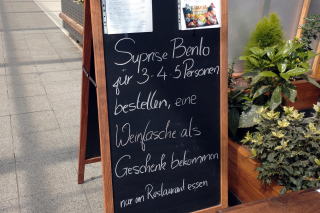 Suprise Bento
für 3-4-5 Personen
bestellen, eine
Weinflasche als
Geschenk bekommen
nur am Restaurand essen